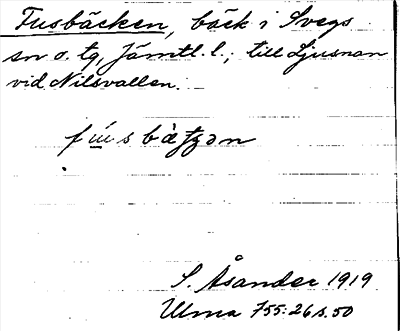 Fusbäcken, bäck i Svegs
sn o. tg, Jämtl. l.; till Ljusnan
vid Nilsvallen.
S. Åsander 1919
Ulma 755:26 s. 50